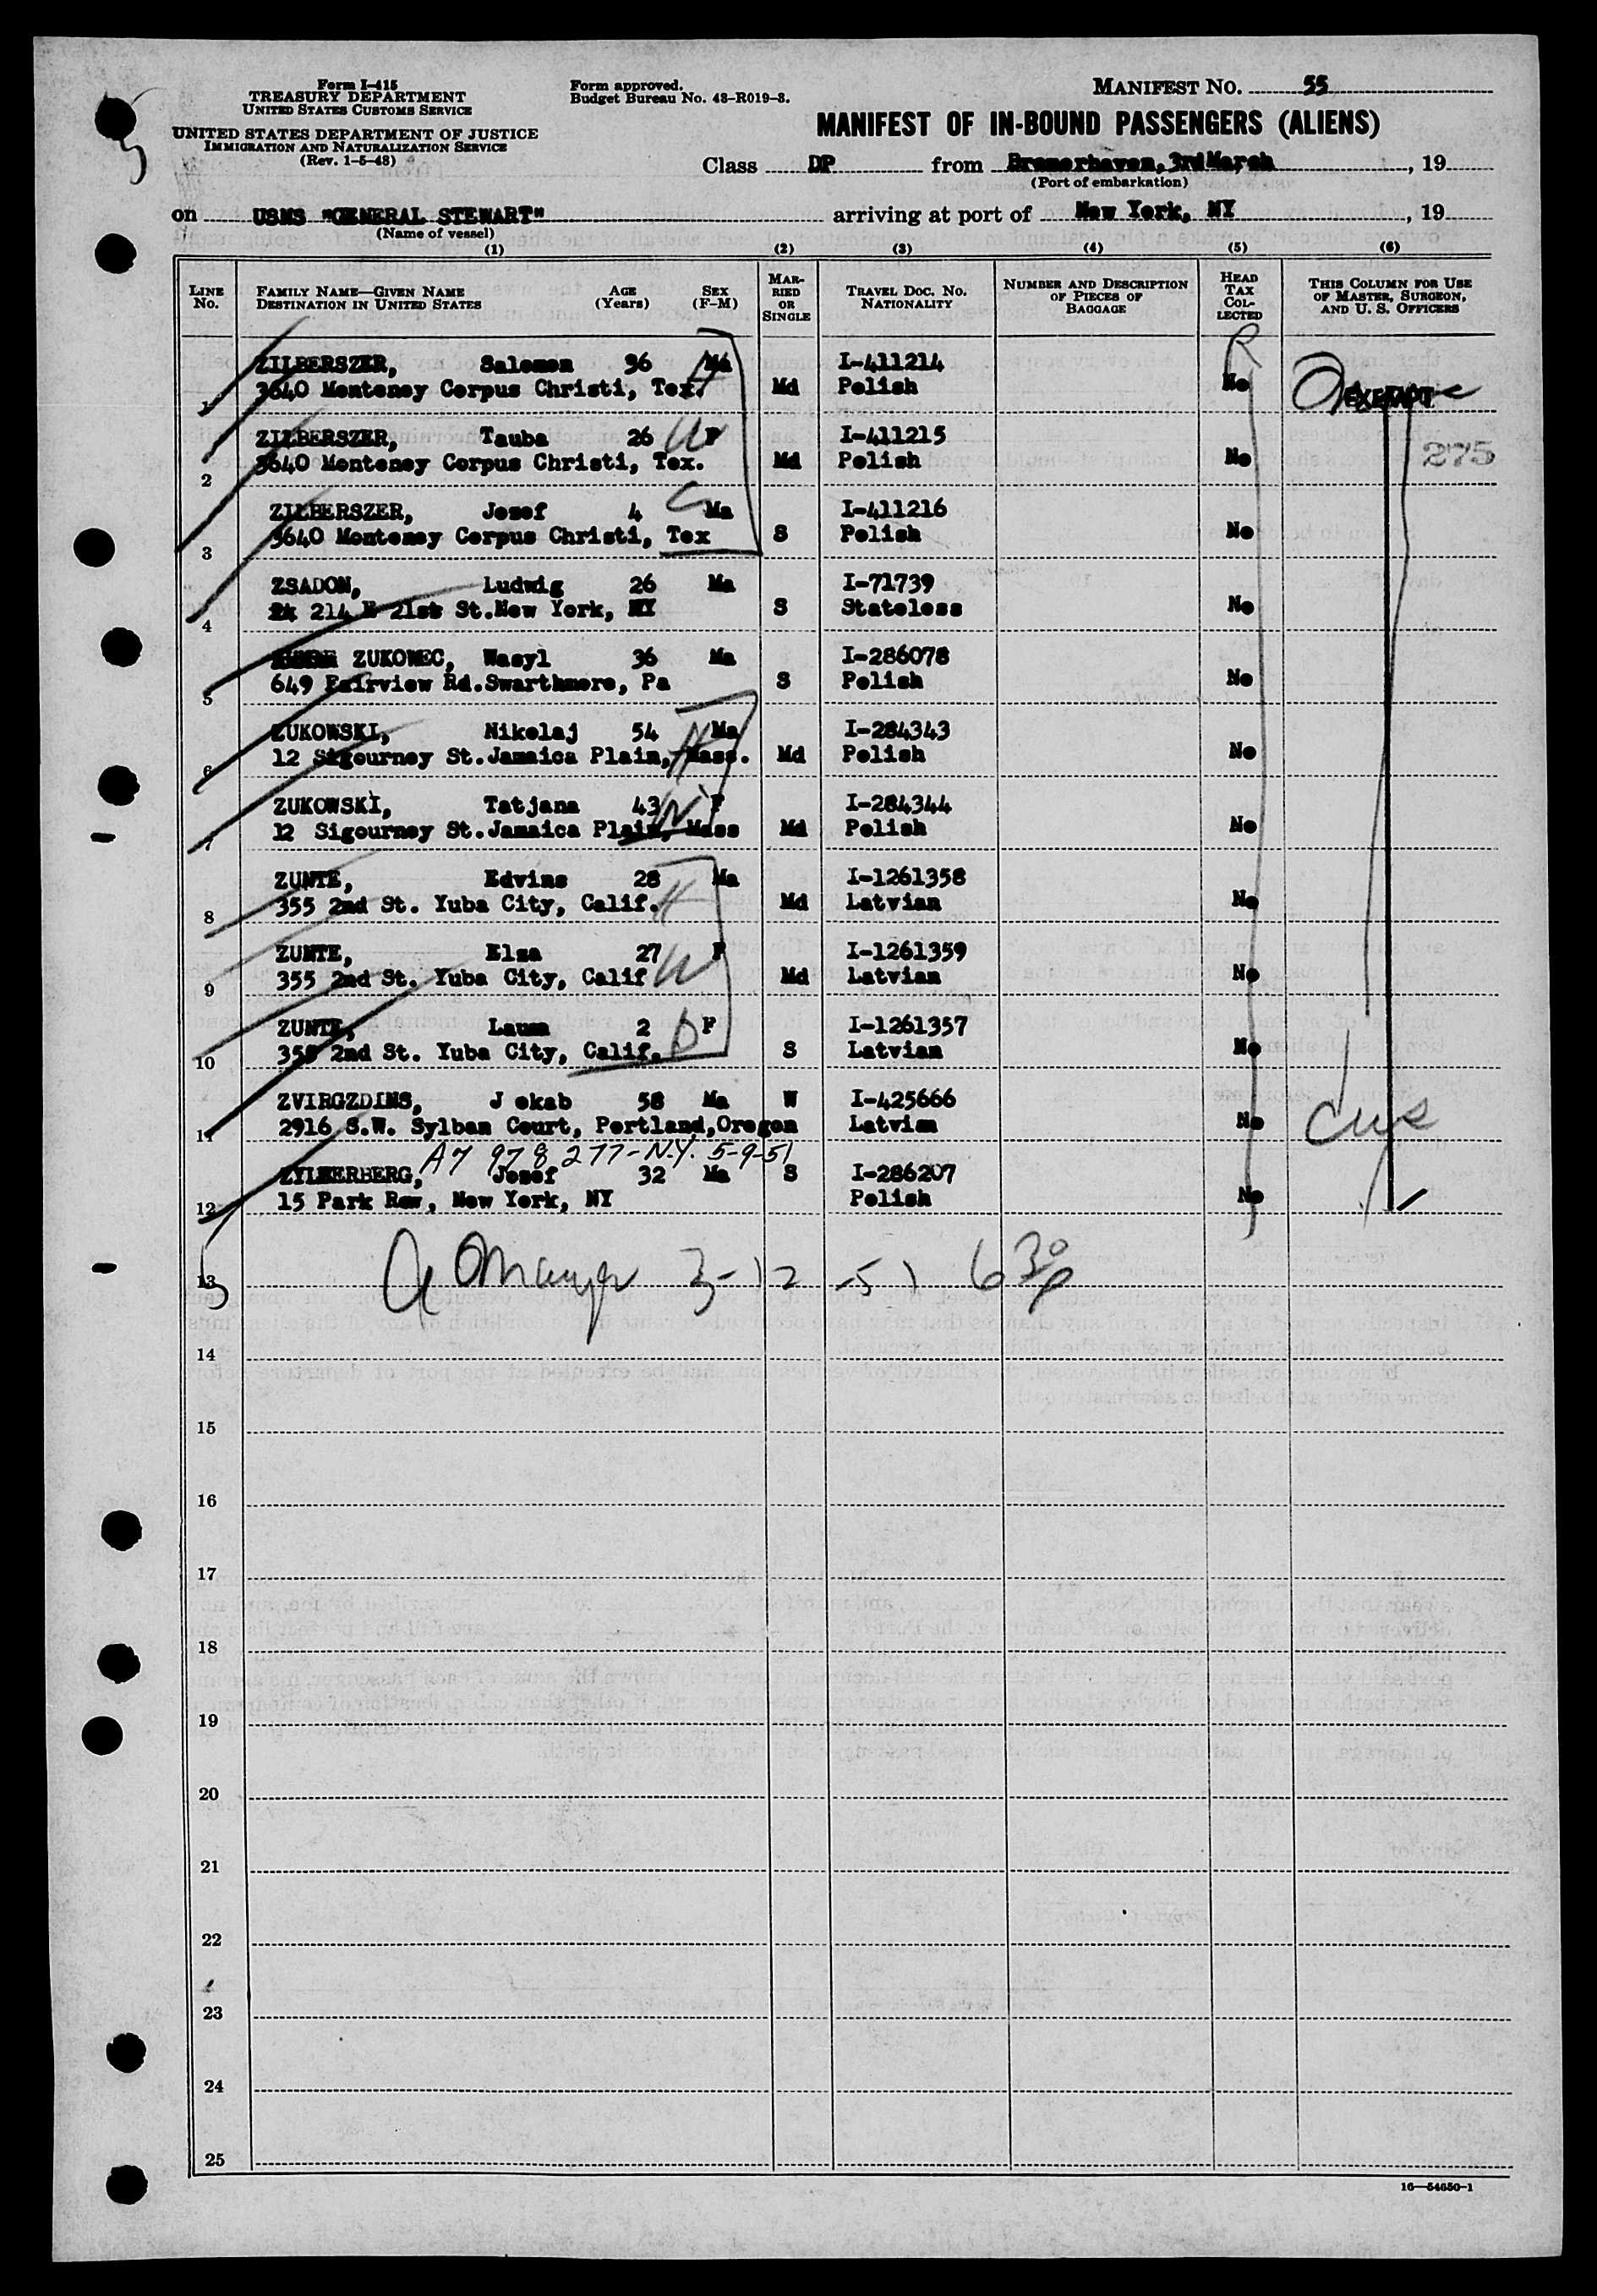 Form I-415
TREASURY DEPARTMENT
UNITED STATES CUSTOMS SERVICE
UNITED STATES DEPARTMENT OF JUSTICE
IMMIGRATION AND NATURALIZATION SERVICE
(Rev. 1-5-48)
Form approved.
Budget Bureau No. 43-R019-3.
MANIFEST NO. 55
MANIFEST OF IN-BOUND PASSENGERS (ALIENS)
Class DP from Bremerhaven, 3rd March, 19
(Port of embarkation)
on USNS "GENERAL STEWART" arriving at port of New York, NY, 19
(Name of vessel)
(1) (2) (3) (4) (5) (6)
LINE No. FAMILY NAME—GIVEN NAME DESTINATION IN UNITED STATES AGE (Years) SEX (F-M) MARRIED OR SINGLE TRAVEL DOC. NO. NATIONALITY NUMBER AND DESCRIPTION OF PIECES OF BAGGAGE HEAD TAX COLLECTED THIS COLUMN FOR USE OF MASTER, SURGEON, AND U. S. OFFICERS
ZILBERSZER, Salomon 36 Ma I-411214
1 3640 Monteney Corpus Christi, Tex. Md Polish No EXEMPT
ZILBERSZER, Tauba 26 W F I-411215
2 3640 Monteney Corpus Christi, Tex. Md Polish No 275
ZILBERSZER, Josef 4 C Ma I-411216
3 3640 Monteney Corpus Christi, Tex S Polish No
ZSADON, Ludwig 26 Ma I-71739
4 214 E 21st St. New York, NY S Stateless No
ZUKOWEC, Wasyl 36 Ma I-286078
5 649 Fairview Rd. Swarthmore, Pa S Polish No
ZUKOWSKI, Nikolaj 54 Ma I-284343
6 12 Sigourney St. Jamaica Plain, Mass. H Md Polish No
ZUKOWSKI, Tatjana 43 W F I-284344
7 12 Sigourney St. Jamaica Plain, Mass Md Polish No
ZUNTE, Edvins 28 Ma I-1261358
8 355 2nd St. Yuba City, Calif. H Md Latvian No
ZUNTE, Elza 27 F I-1261359
9 355 2nd St. Yuba City, Calif W Md Latvian No
ZUNTE, Lauma 2 D F I-1261357
10 355 2nd St. Yuba City, Calif. S Latvian No
ZVIRGZDINS, Jekab 58 Ma W I-425666
11 2916 S.W. Sylban Court, Portland, Oregon Latvian No
A7 978 277-N.Y. 5-9-51
ZYLBERBERG, Josef 32 Ma S I-286207
12 15 Park Row, New York, NY Polish No
13 3-12-51 6 30 p
14
15
16
17
18
19
20
21
22
23
24
25
16—54650-1